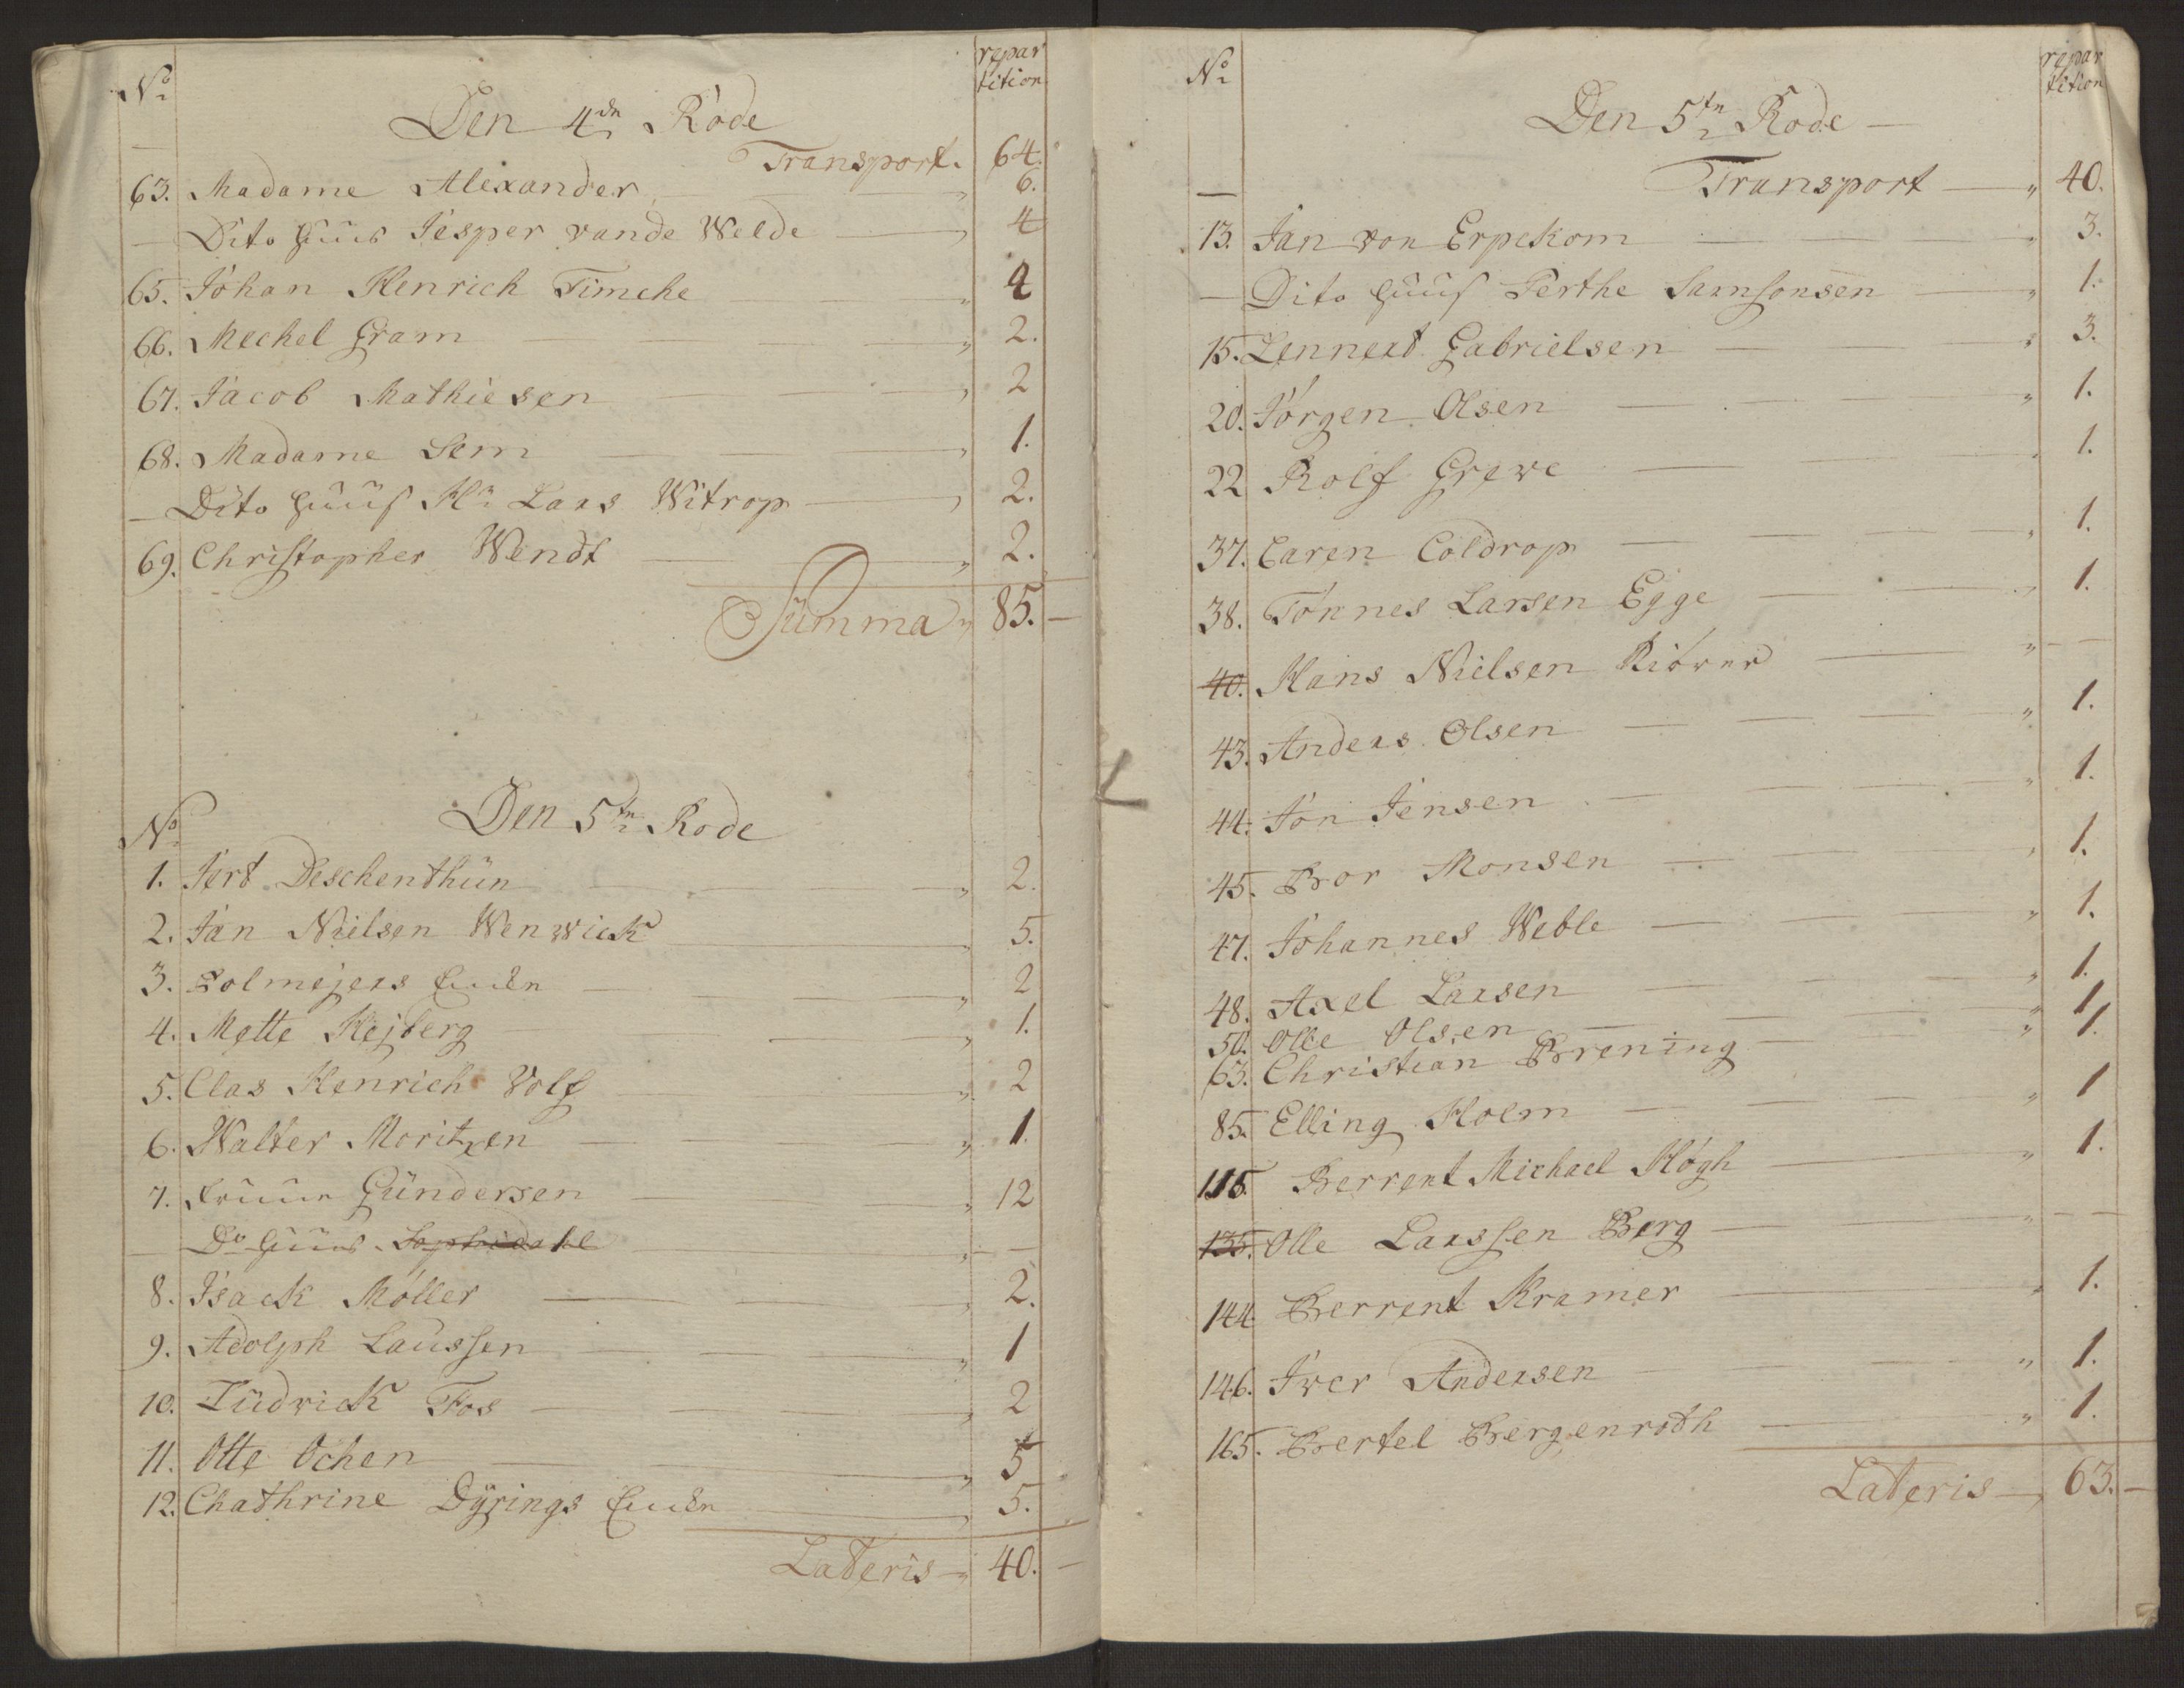 No repar
tition
Den 4de Rode
Transport. 64.
63. Madame Alexander 6.
— Dito huus Jesper vande Welde 4
65. Johan Henrich Timche 4
66. Mechel Gram 2.
67. Jacob Mathiesen 2
68. Madame Sem 1.
— Dito huus Hr Lars Witrop 2.
69. Christopher Wendt 2.
Summa 85.—
No Den 5te Rode
1. Jert Deschenthün 2.
2. Jan Nielsen Wenwick 5.
3. Holmejers Encken 2
4. Mette Hejberg 1.
5. Clas Henrich Volf 2
6. Walter Moritzen 1.
7. Fruun Gündersen 12
— Do huus Sophiedahl —
8. Isack Möller 2.
9. Adolph Laussen 1
10. Lüdvick Fos 2
11. Otte Ochen 5
12. Chathrine Dÿrings Encken 5.
Lateris 40.—
No repar
tition
Den 5te Rode —
— Transport 40.
13. Jan von Erpekom 3.
— Dito huus Perthe Samsonsen 1.
15. Lennert Gabrielsen 3.
20. Jörgen Olsen 1.
22 Rolf Greve 1.
37. Caren Coldrop 1.
38. Tönnes Larsen Egge 1.
40. Hans Nielsen Riöver —
43. Anders Olsen 1.
44. Jon Jensen 1.
45. Bror Monsen 1.
47. Johannes Weble 1.
48. Axel Larsen 1.
50. Olle Olsen 1.
63. Christian Brening 1.
85. Elling Holm 1
115. Berrent Michael Högh 1.
135. Olle Larssen Berg —
144 Berrent Kramer 1.
146. Iver Andersen 1.
165. Bertel Bergenroth 1.
Lateris 63.—